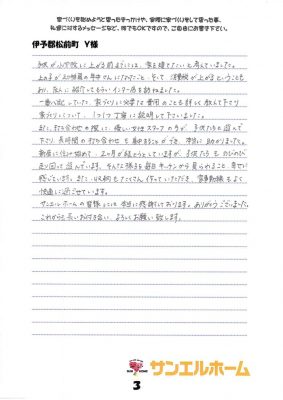 家づくりを始めようと思ったきっかけや、実際に家づくりをして思った事、
私達に対するメッセージなど、何でもOKですので、ご自由にお書き下さい。
伊予郡松前町 Y様
子供が小学校に上がる前までには、家を建てたいと考えていました。
上の子が幼稚園の年中さんになったこと、そして消費税が上がるということも
あり、友人に紹介してもらいサンエール房を訪ねました。
一番心配していた家づくりの知識と費用のことも詳しく教えて下さり
家づくりについて、1つ1つ丁寧に説明して下さいました。
また、打ち合わせの際に、優しい女性スタッフの方が、子供たちと遊んで
下さり、長時間の打ち合わせも集中することができ、本当に助かりました。
新居に住み始めて、2ヶ月が経とうとしていますが、子供たちものびのびと
走り回って遊んでいます。そんな様子を毎日キッチンから見られること、幸せに
感じています。また、収納もたくさん作っていただき、家事動線もよく
快適に過ごせています。
サンエルホームの皆様には本当に感謝しております。ありがとうございました。
これからも長いお付き合い、よろしくお願い致します。
サンエルホーム
3